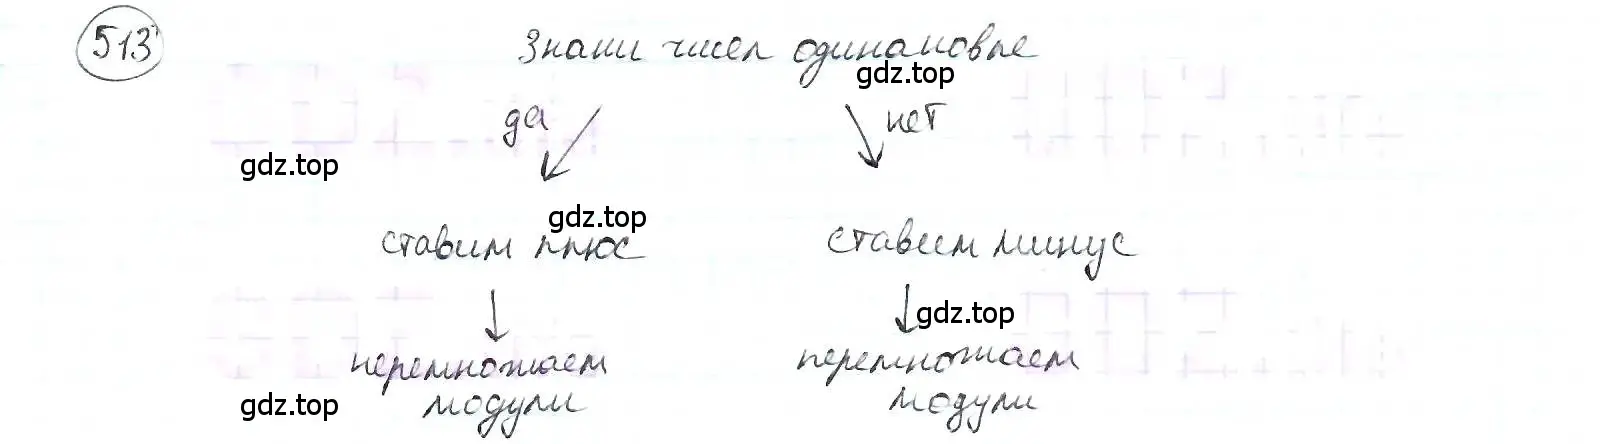 513
Знаки чисел одинаковые
gdz.top
да нет
gdz.top
gdz.top
ставим плюс ставим минус
gdz.top
перемножаем перемножаем
модули модули
gdz.top